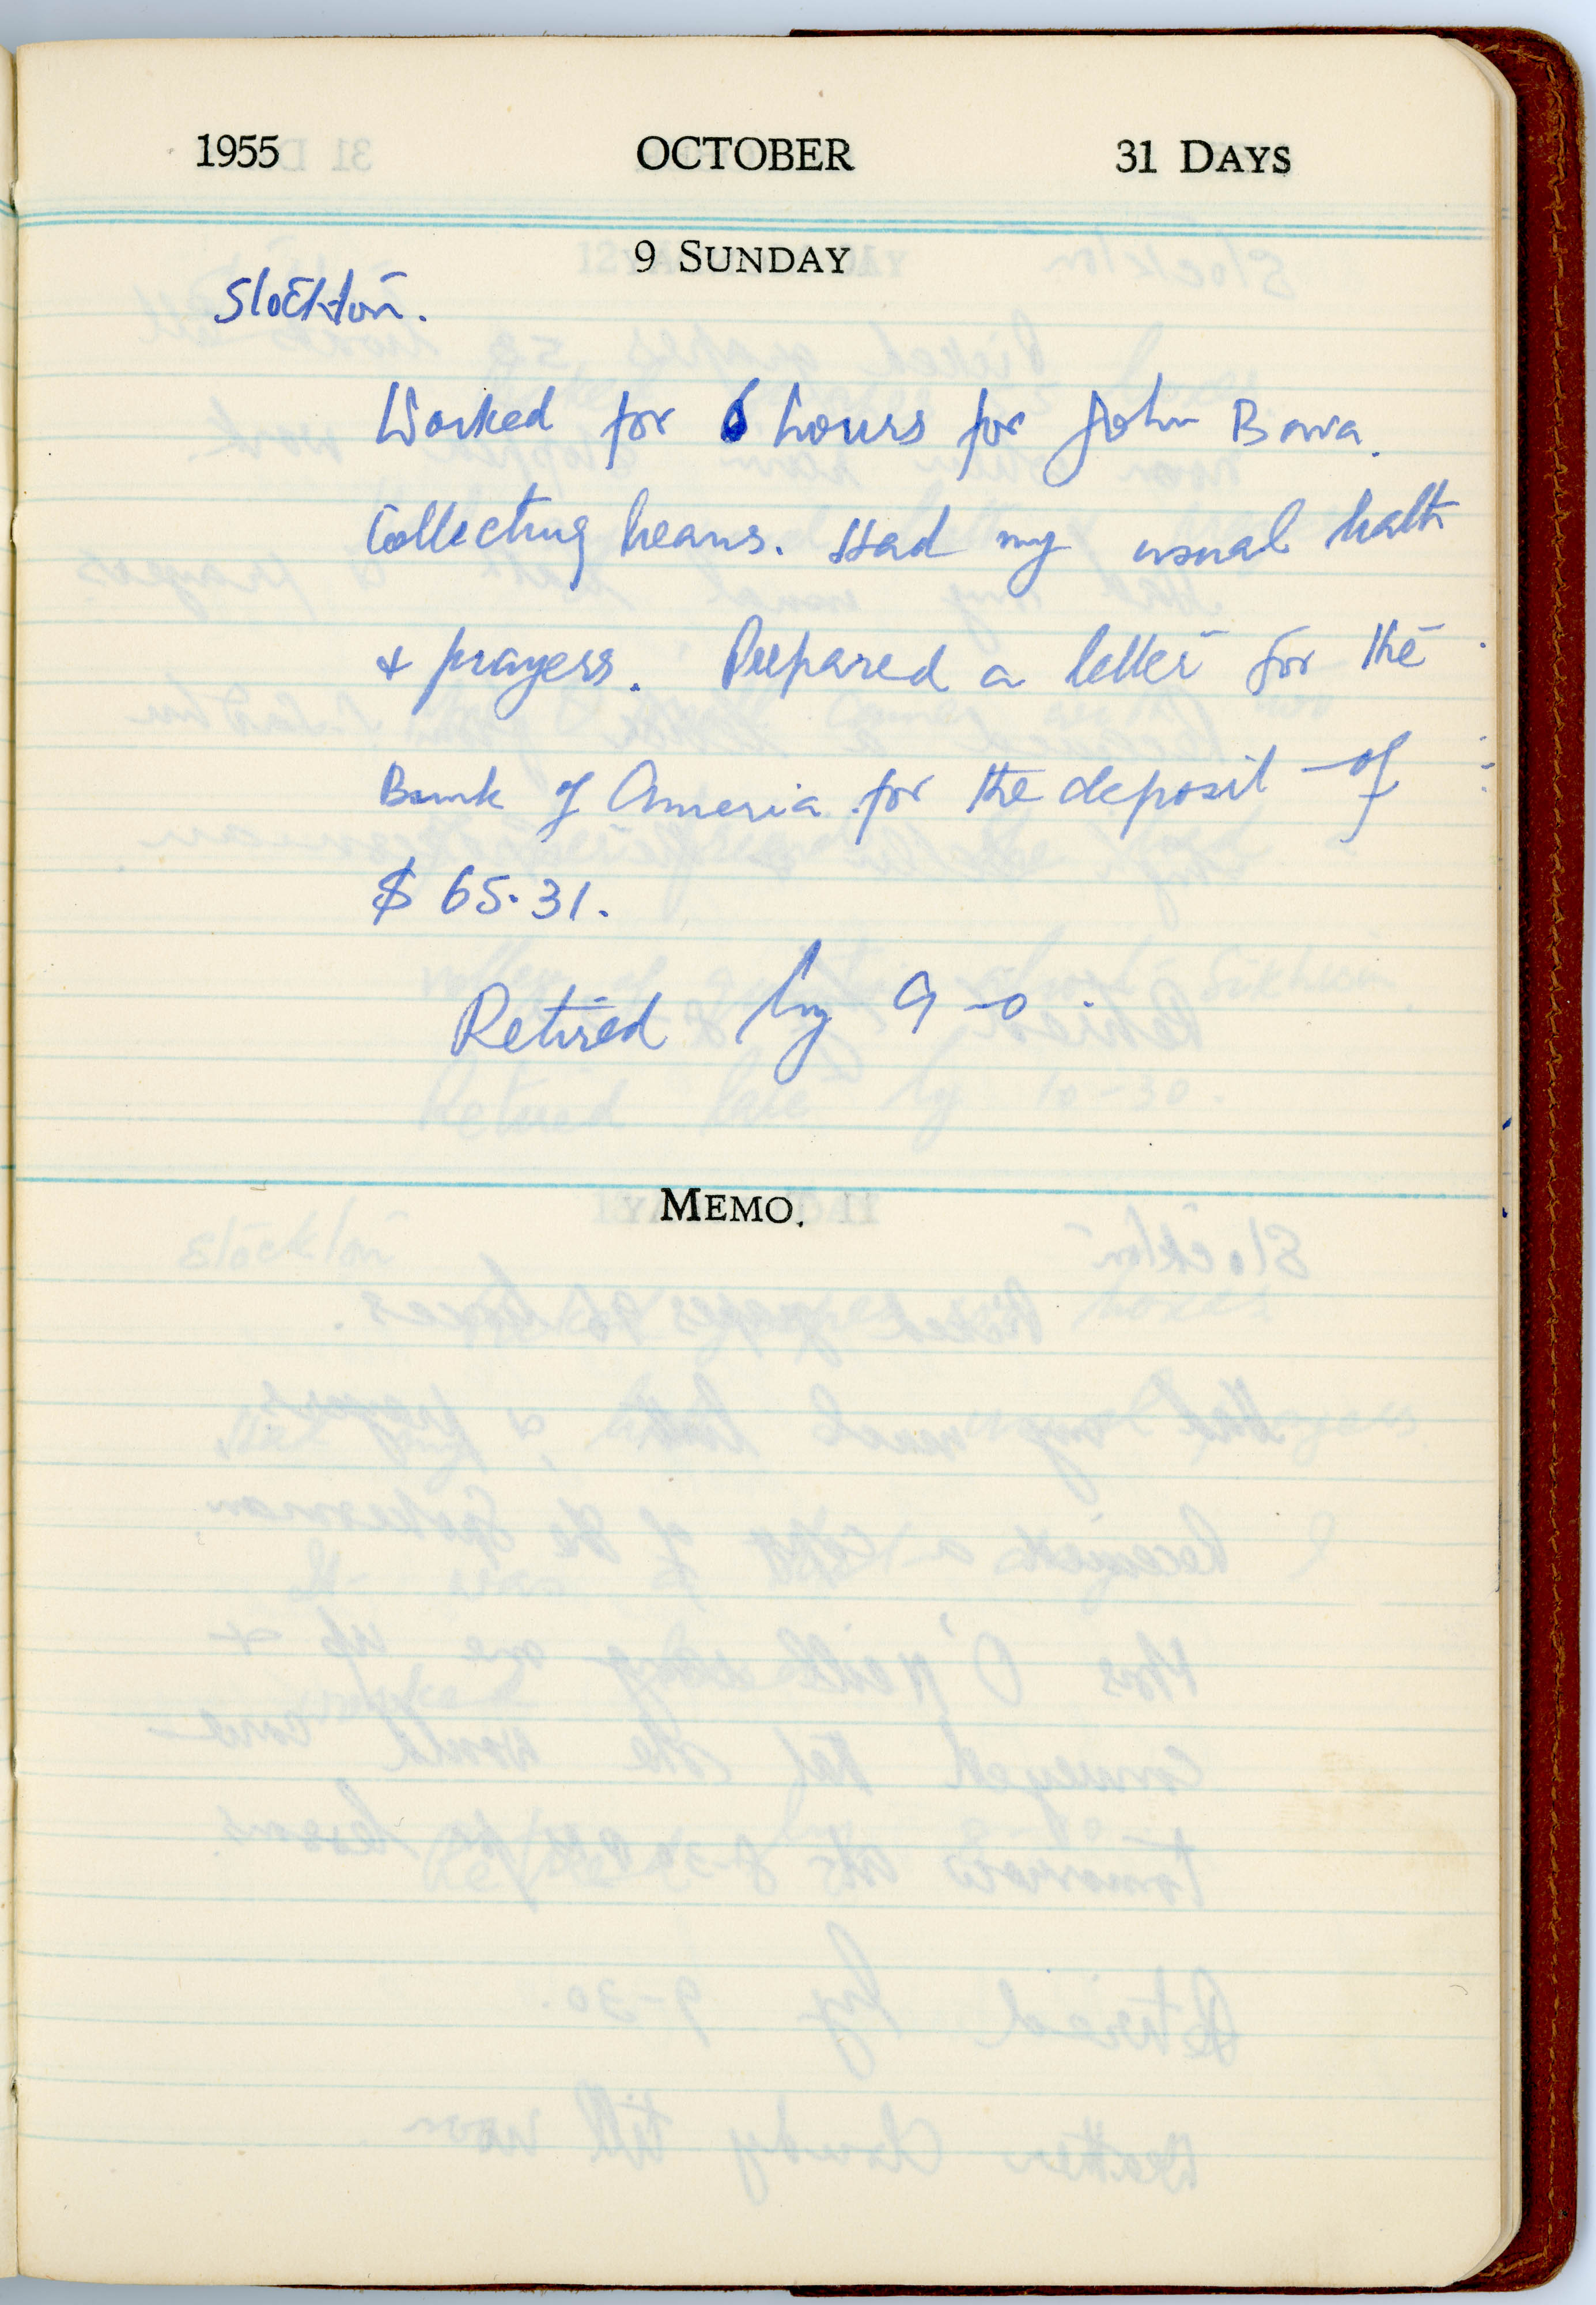 1955 OCTOBER 31 DAYS
9 SUNDAY
Stockton.
Worked for 6 hours for John Bawa.
Collecting beans. Had my usual bath
& prayers. Prepared a letter for the
Bank of America for the deposit of
$ 65.31.
Retired by 9-0.
MEMO.